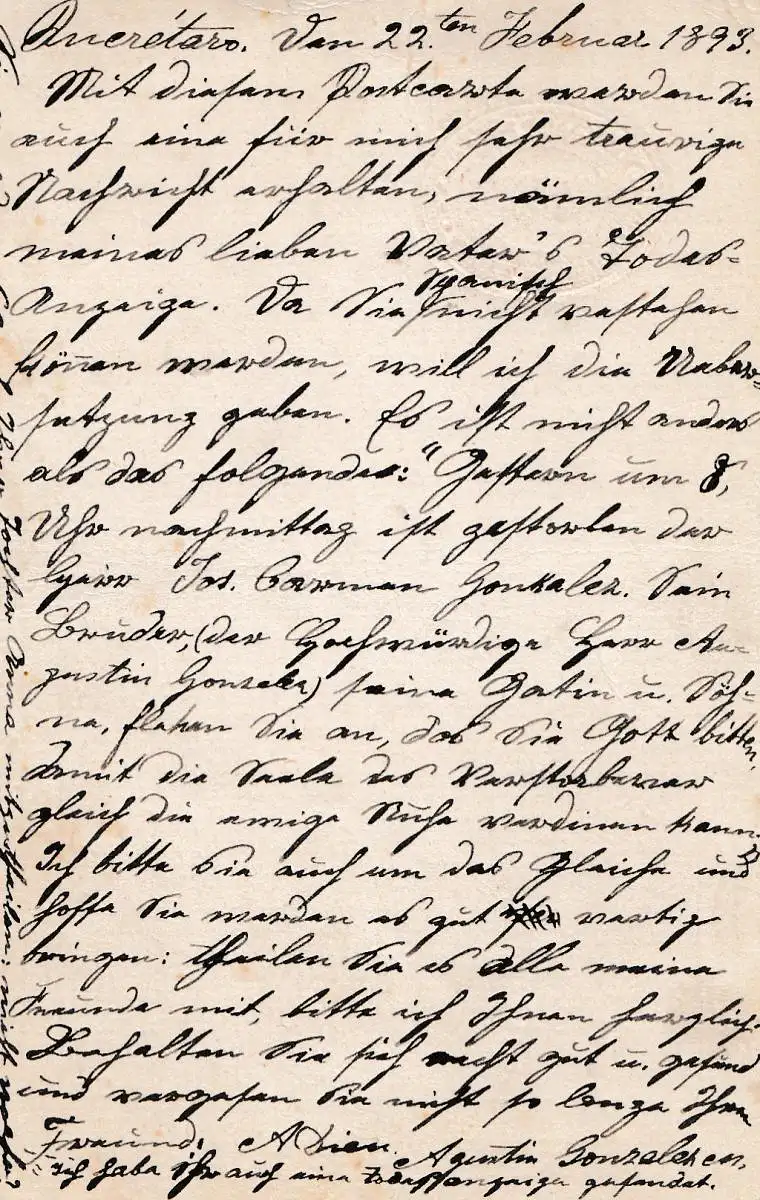 Querétaro. Den 22.ten Februar 1893.
Mit diesem Postcarte werden Sie
auch eine für mich sehr traurige
Nachricht erhalten, nämlich
meines lieben Vater's Todes-
Anzeige. Da Sie Spanisch nicht vestehen
können werden, will ich die Ueber-
setzung geben. Es ist nicht anders
als das folgendes: "Gestern um 8,
Uhr nachmittag ist gestorben der
Herr Jos. Carmen Gonzalez. Sein
Bruder, (der Hochwürdige Herr Au-
gustin Gonzalez) seine Gatin u. Söh-
ne, flehen Sie an, das Sie Gott bitten,
damit die Seele des Verstorbener
gleich die ewige Ruhe verdinen kann.
Ich bitte Sie auch um das Gleiche und
hoffe Sie werden es gut vertig
bringen: theilen Sie es alle meine
Freunde mit, bitte ich Ihnen herzlich.
Behalten Sie sich recht gut u. gesund
und vergesen Sie nicht so lange Ihren
Freund: Adieu. Agustin Gonzalez
Ich habe ihr auch eine Todesanzeige gesendet.
Ihrer Tochter Anna mitzutheilen: nicht wahr?